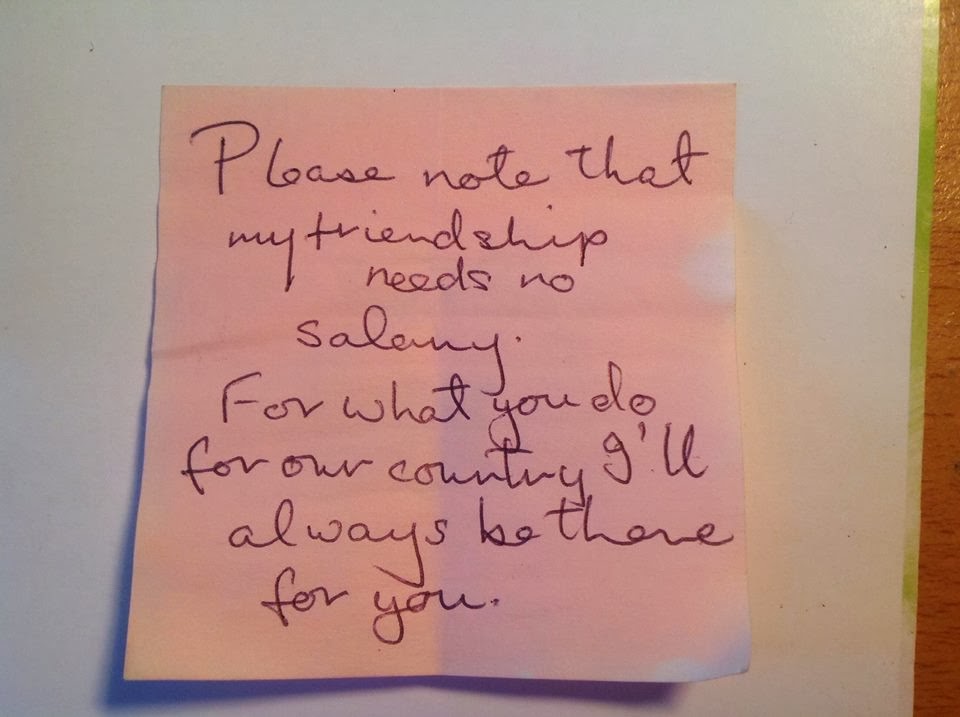 Please note that
my friendship
needs no
salary.
For what you do
for our country I'll
always be there
for you.